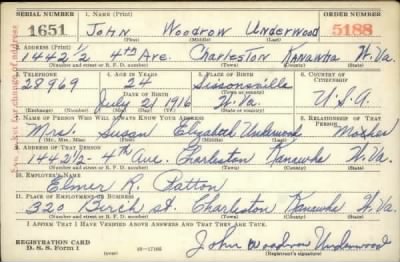 SERIAL NUMBER 1. NAME (Print) ORDER NUMBER
1651 John Woodrow Underwood 5188
2. ADDRESS (Print)
1442½ 4th Ave. Charleston Kanawha W.Va.
(Number and street or R. F. D. number) (Town) (County) (State)
3. TELEPHONE 4. AGE IN YEARS 5. PLACE OF BIRTH 6. COUNTRY OF CITIZENSHIP
28969 24 Sissonsville
DATE OF BIRTH
July 21 1916 W.Va. U.S.A.
(Exchange) (Number) (Mo.) (Day) (Yr.) (State or country)
7. NAME OF PERSON WHO WILL ALWAYS KNOW YOUR ADDRESS 8. RELATIONSHIP OF THAT PERSON
Mrs. Susan Elizabeth Underwood Mother
(Mr., Mrs., Miss) (First) (Middle) (Last)
9. ADDRESS OF THAT PERSON
1442½ - 4th Ave. Charleston Kanawha W.Va.
(Number and street or R. F. D. number) (Town) (County) (State)
10. EMPLOYER'S NAME
Elmer R. Patton
11. PLACE OF EMPLOYMENT OR BUSINESS
320 Birch st. Charleston Kanawha W.Va.
(Number and street or R. F. D. number) (Town) (County) (State)
I AFFIRM THAT I HAVE VERIFIED ABOVE ANSWERS AND THAT THEY ARE TRUE.
REGISTRATION CARD
D. S. S. Form 1 (over) John Woodrow Underwood
(Registrant's signature)